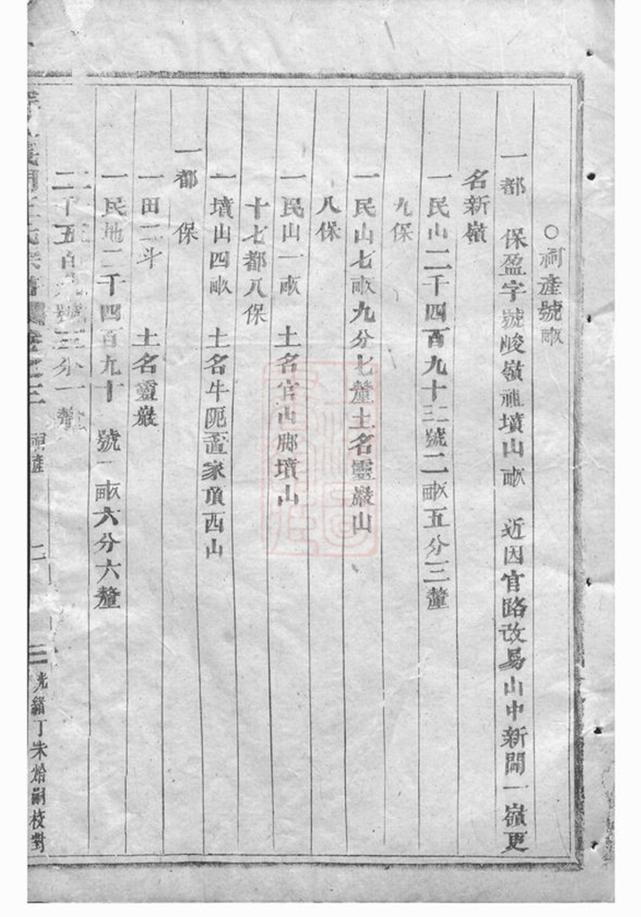 ○祠產號畝
一都　保盈字號峻嶺祖墳山畝　近因官路改易山中新開一嶺更
名新嶺
一民山二千四百九十三號二畝五分三釐
九保
一民山七畝九分七釐土名靈巖山
八保
一民山一畝　土名官山脚墳山
十七都八保
一墳山四畝　土名牛軛 家頂西山
一都　保
一田二斗　土名靈巖
一民地二千四百九十　號一畝六分六釐
二千五百 號 分一釐
祠產　二
光緒丁 校對